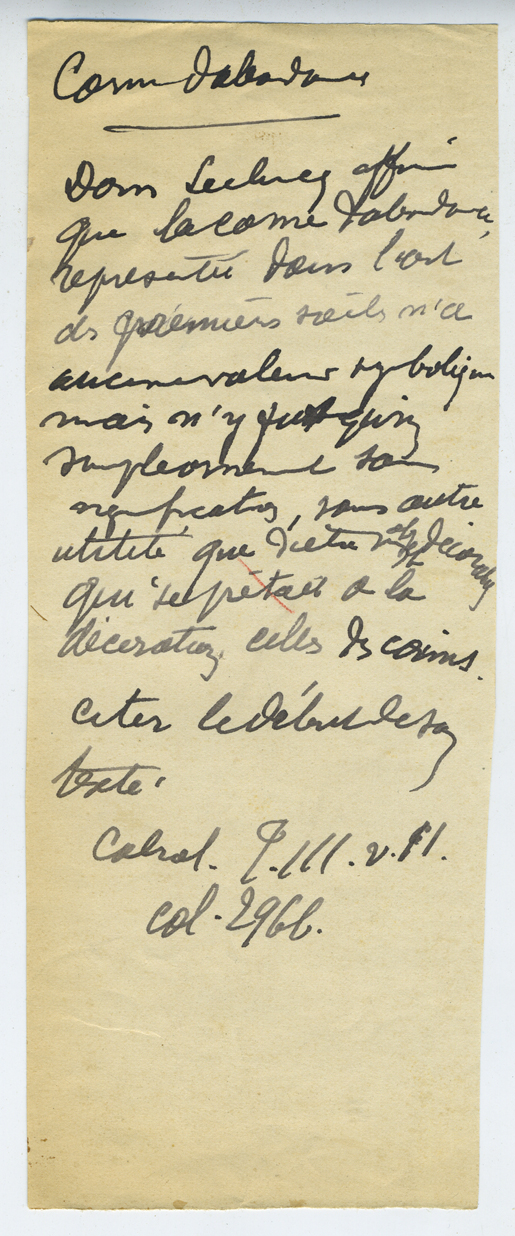 Corne d'abondance
Dom Leclercq affirme
que la corne d'abondance,
représentée dans l'art
des premiers siècles n'a
aucune valeur symbolique
mais n'y fut qu'un
simple ornement sans
signification, sans autre
utilité que d'être
qui se prêtait à la
décoration, celles des coins.
citer le début de son
texte.
Cabrol. T.III. v.II.
col. 2966.